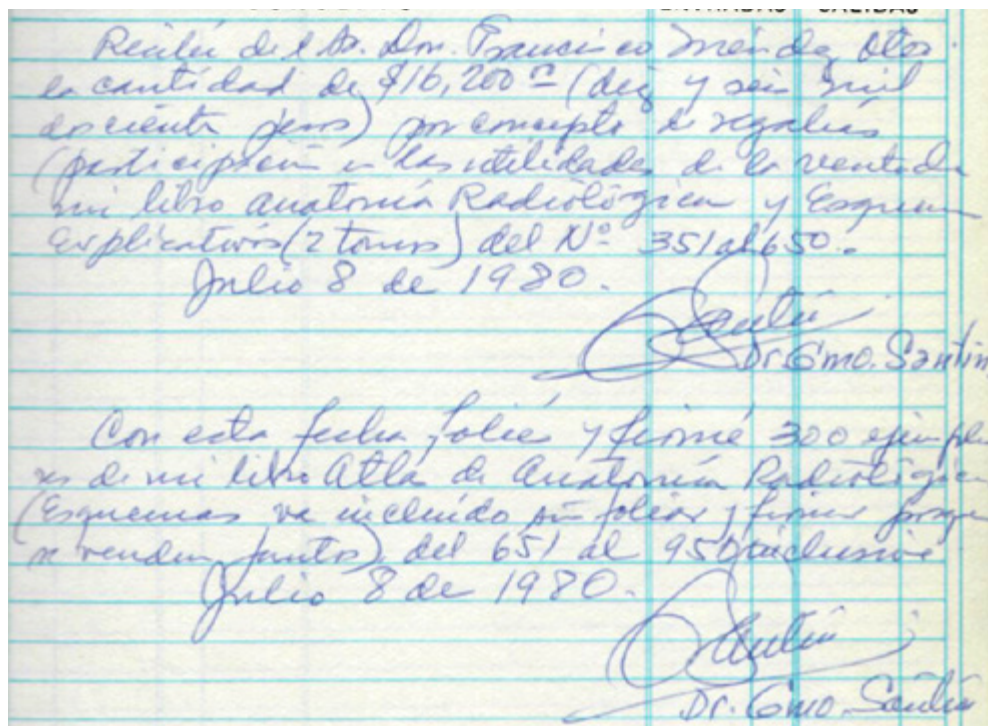 ENTRADAS SALIDAS
Recibí del Sr. Don. Francisco Méndez Oteo
la cantidad de $16,200 (diez y seis mil
docientos pesos) por concepto de regalías
(participación en las utilidades de la venta de
mi libro Anatomía Radiológica y Esquem
Explicativos (2 tomos) del Nº 351 al 650.
Julio 8 de 1980.
Santín
Dr. Gmo. Santín
Con esta fecha folié y firmé 300 ejempla
res de mi libro Atlas de Anatomía Radiológica
(Esquemas va incluído sin foliar y firmar porque
se venden juntos) del 651 al 950 inclusive
Julio 8 de 1980.
Santín
Dr. Gmo. Santín